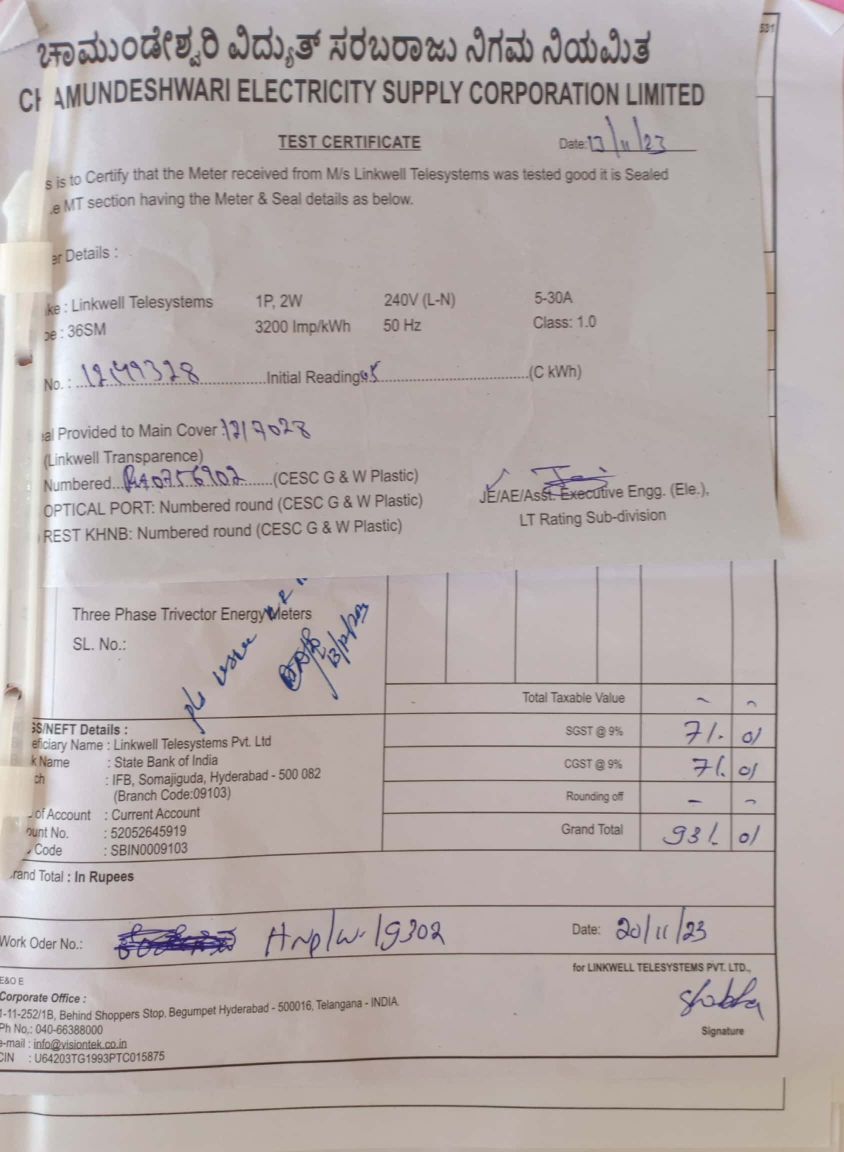 531
ಚಾಮುಂಡೇಶ್ವರಿ ವಿದ್ಯುತ್ ಸರಬರಾಜು ನಿಗಮ ನಿಯಮಿತ
CHAMUNDESHWARI ELECTRICITY SUPPLY CORPORATION LIMITED
TEST CERTIFICATE
Date: 13/11/23
s is to Certify that the Meter received from M/s Linkwell Telesystems was tested good it is Sealed
e MT section having the Meter & Seal details as below.
er Details :
ke : Linkwell Telesystems 1P, 2W 240V (L-N) 5-30A
pe : 36SM 3200 Imp/kWh 50 Hz Class: 1.0
No. : 12149328 Initial Reading (C kWh)
al Provided to Main Cover : 1217028
(Linkwell Transparence)
Numbered (CESC G & W Plastic)
OPTICAL PORT: Numbered round (CESC G & W Plastic)
REST KHNB: Numbered round (CESC G & W Plastic)
JE/AE/Asst. Executive Engg. (Ele.),
LT Rating Sub-division
Three Phase Trivector Energy Meters
SL. No.:
Total Taxable Value
SGST @ 9% 7/. 01
CGST @ 9% 7/. 01
Rounding off
Grand Total 93/. 01
GS/NEFT Details :
eficiary Name : Linkwell Telesystems Pvt. Ltd
k Name : State Bank of India
ch : IFB, Somajiguda, Hyderabad - 500 082
(Branch Code:09103)
of Account : Current Account
ount No. : 52052645919
Code : SBIN0009103
rand Total : In Rupees
Work Oder No.: 19302
Date: 20/11/23
E&O E
for LINKWELL TELESYSTEMS PVT. LTD.,
Corporate Office :
1-11-252/1B, Behind Shoppers Stop, Begumpet Hyderabad - 500016, Telangana - INDIA.
Ph No,: 040-66388000
e-mail : info@visiontek.co.in
CIN : U64203TG1993PTC015875
Shobha
Signature